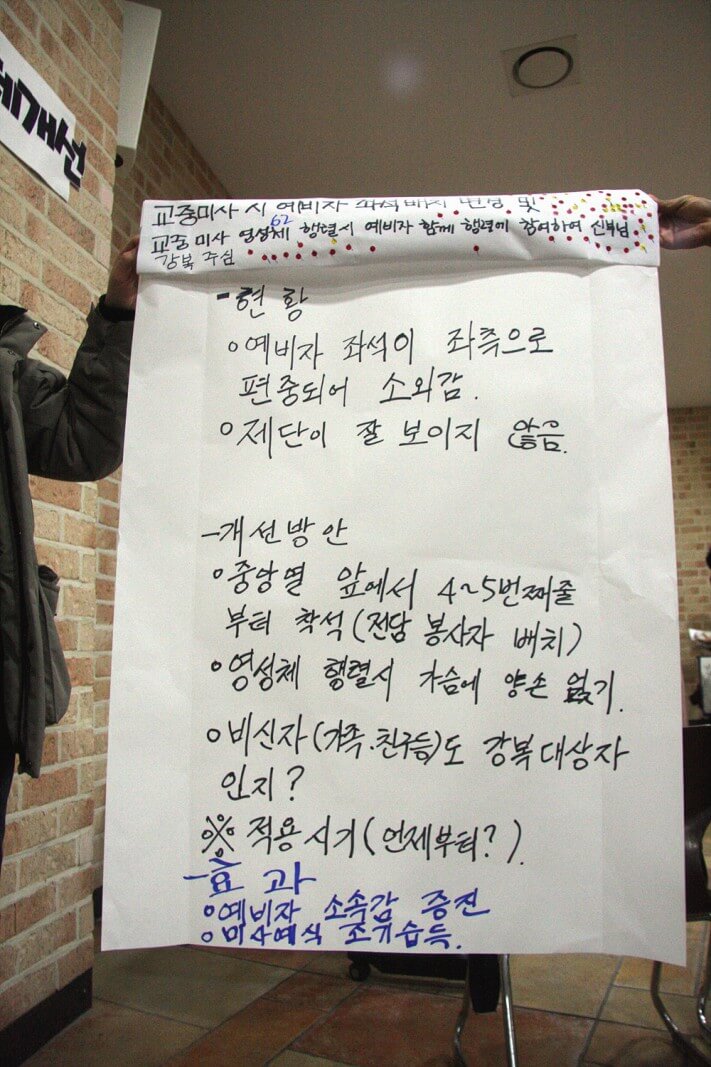 체개선
교중미사 시 예비자 좌석배치 변경 및
62
교중 미사 영성체 행렬시 예비자 함께 행렬에 참여하여 신부님
강복 주심
-현황
○예비자 좌석이 좌측으로
편중되어 소외감.
○제단이 잘 보이지 않음.
-개선방안
○중앙열 앞에서 4~5번째줄
부터 착석(전담 봉사자 배치)
○영성체 행렬시 가슴에 양손 얹기.
○비신자(가족.친구등)도 강복대상자
인지?
※적용시기(언제부터?).
-효과
○예비자 소속감 증진
○미사예식 조기습득.